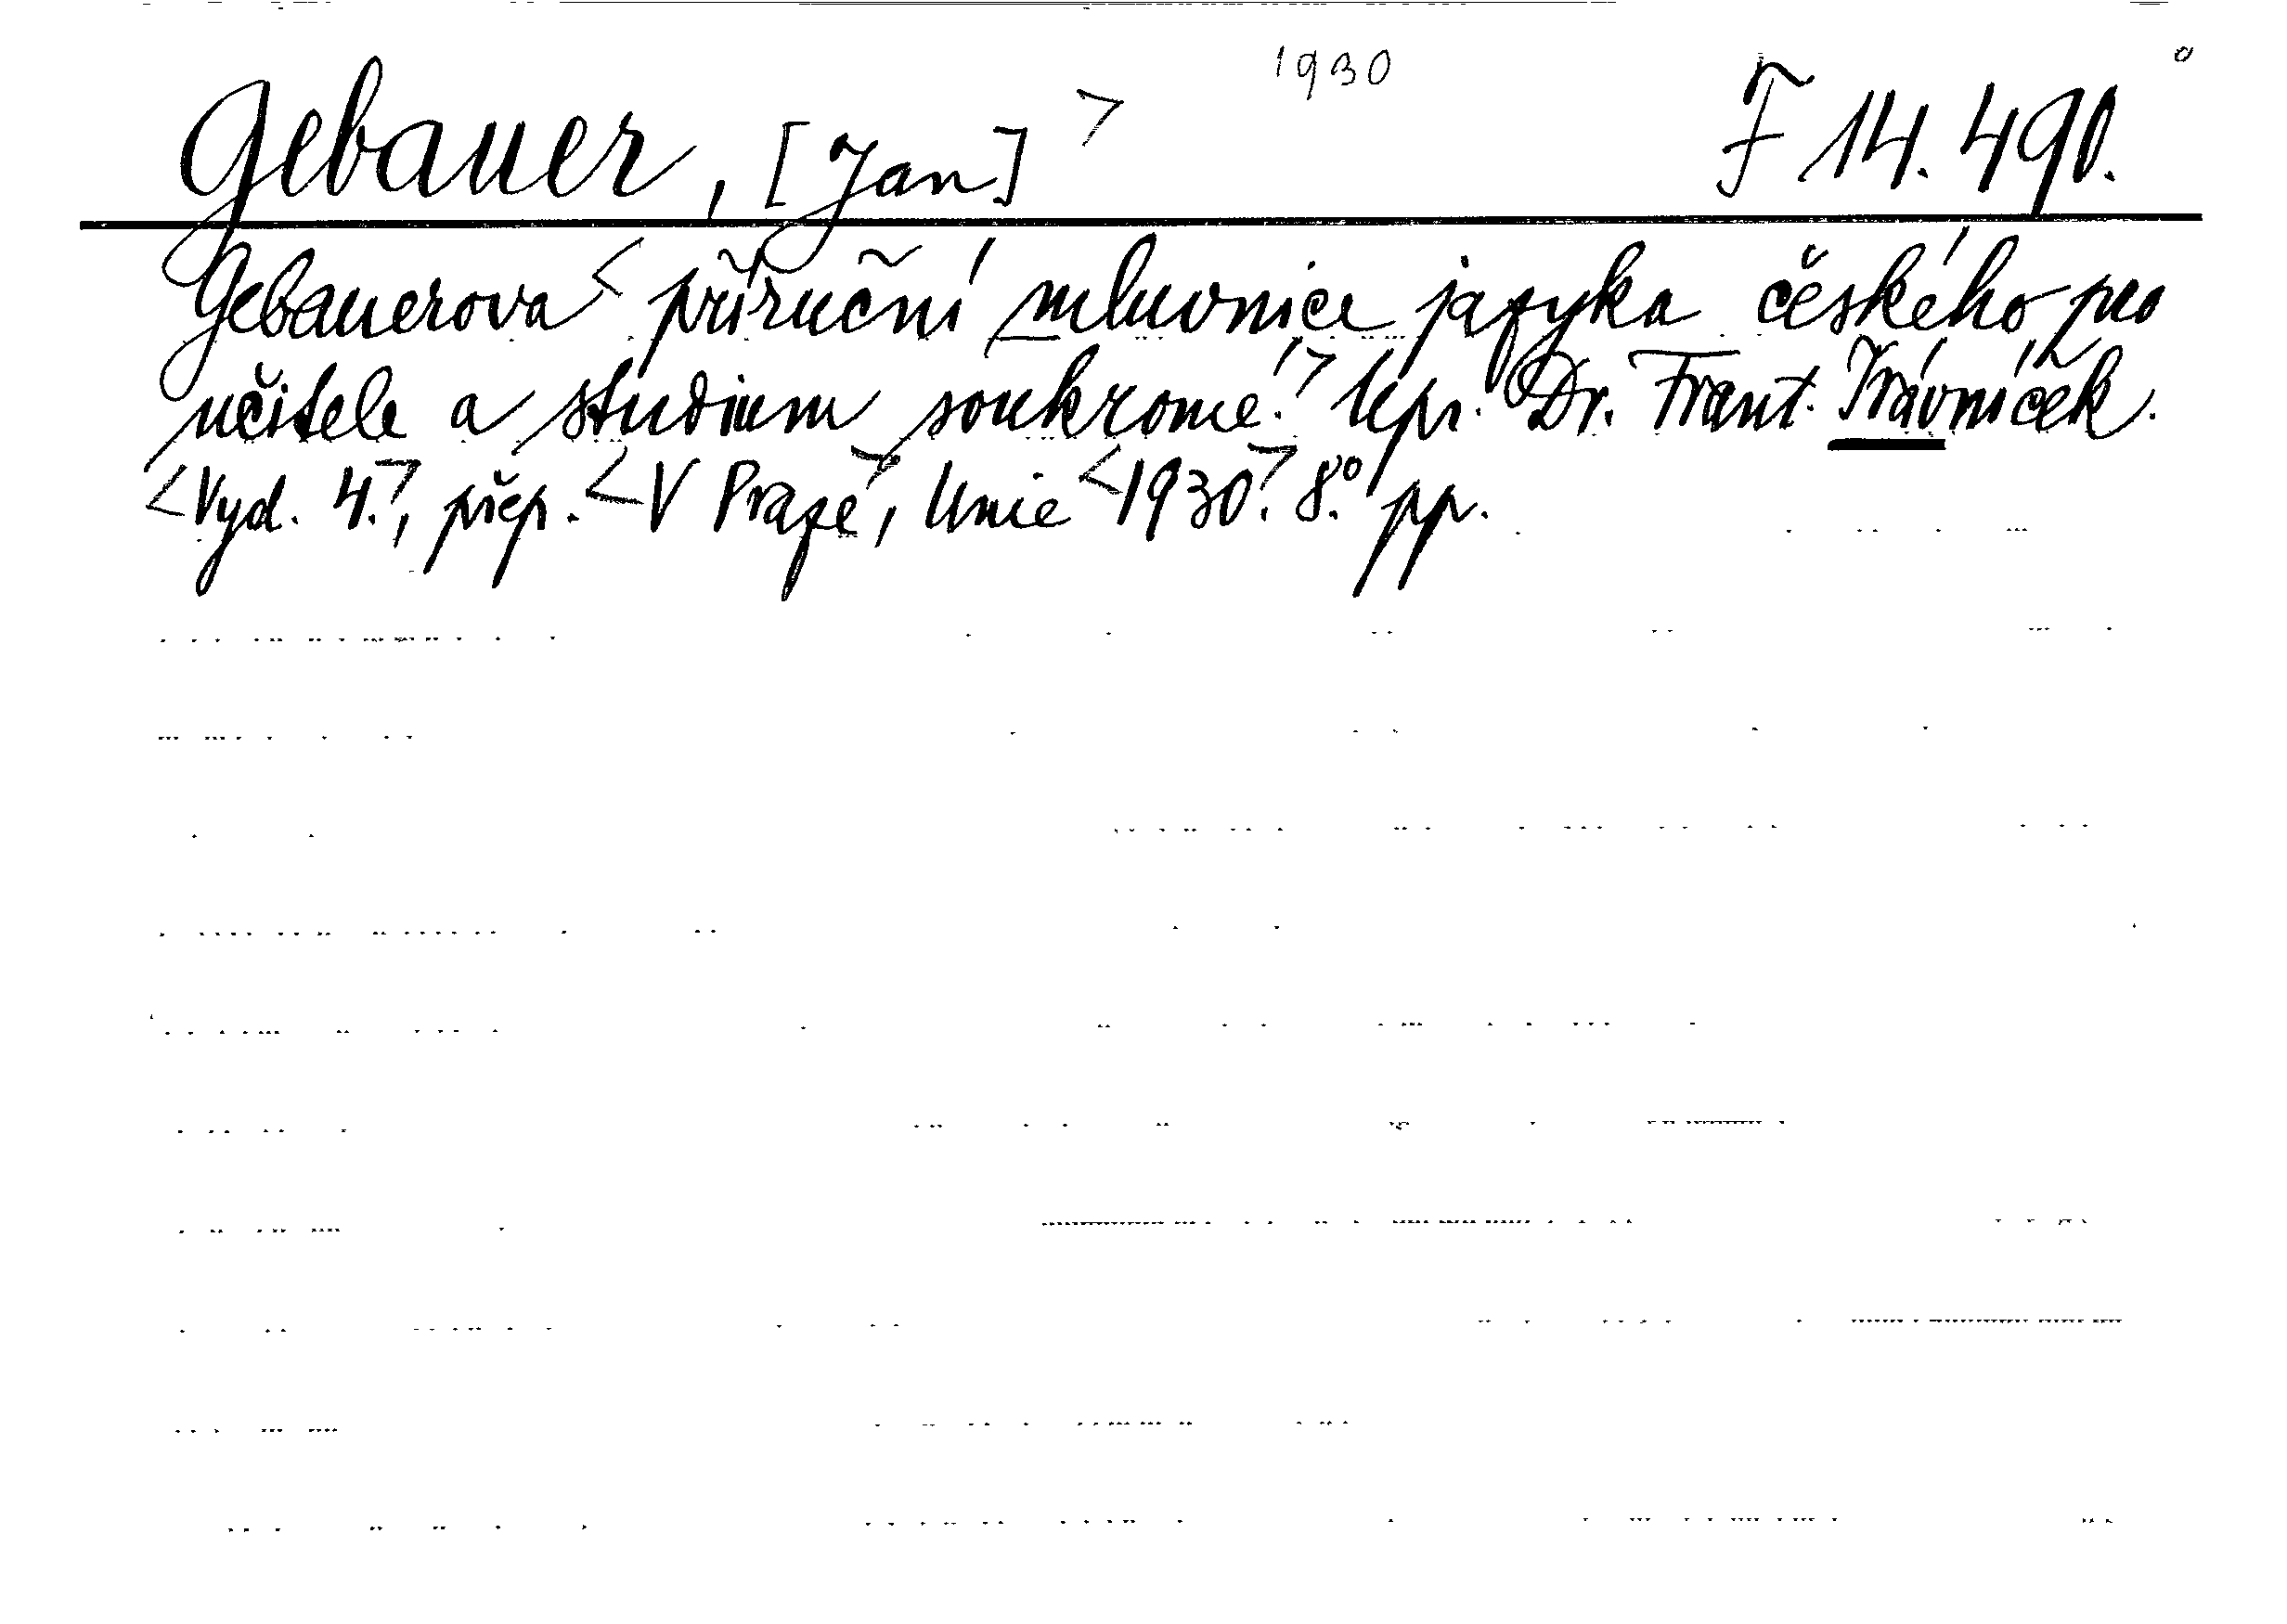 1930
Gebauer, [Jan] > F 14.490.
Gebauerova < příruční mluvnice jazyka českého pro
učitele a studium soukromé.> Upr. Dr. Frant. Trávníček.
<Vyd. 4.>, přep. <V Praze>, Unie <1930>. 8.° pp.